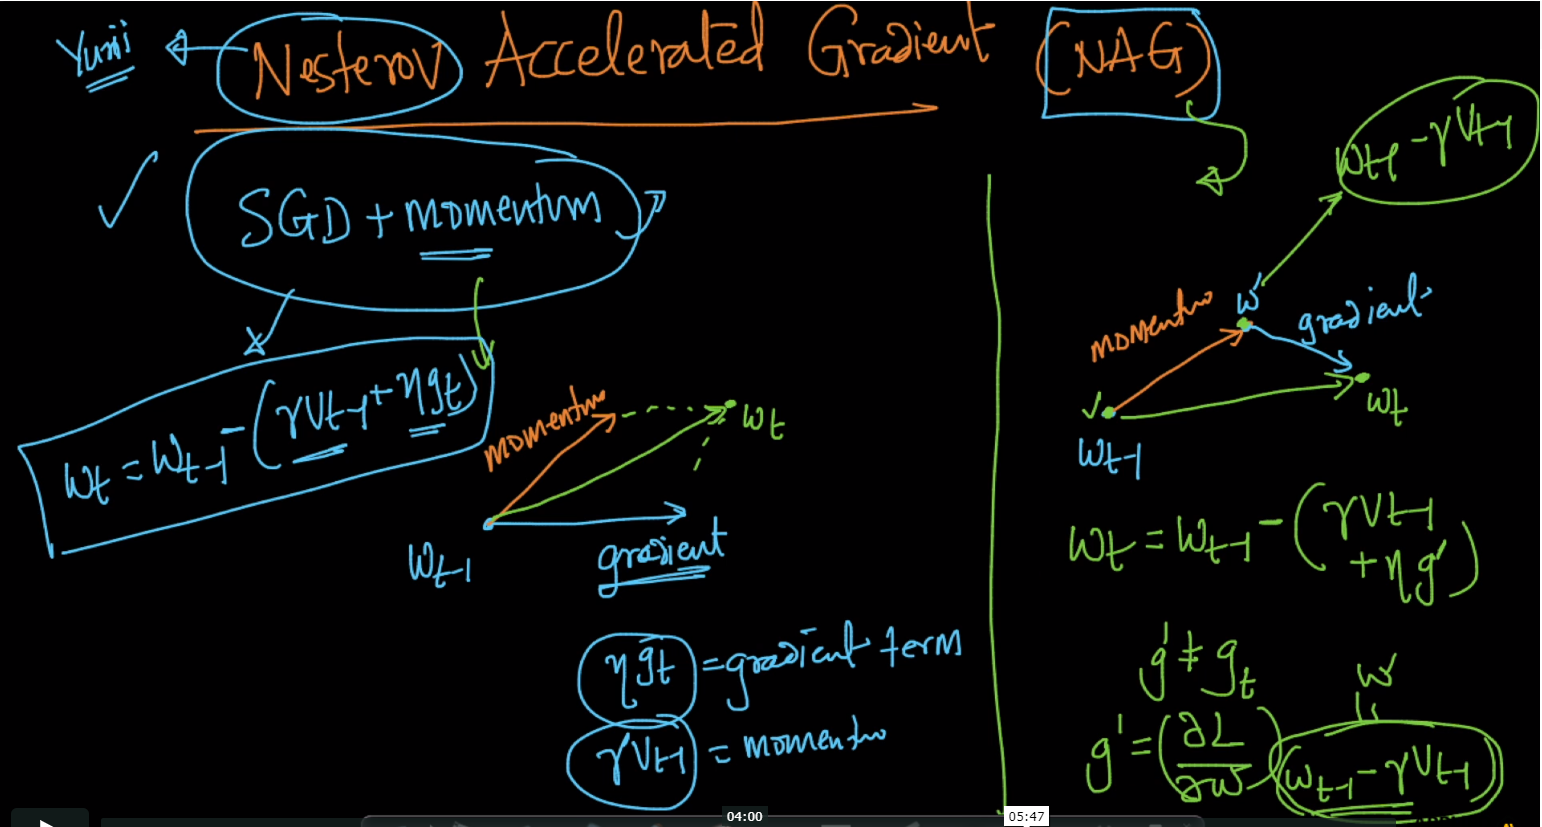 Yurii ← Nesterov Accelerated Gradient (NAG)
SGD + momentum
wt = wt-1 - (γvt-1 + ηgt)
momentum
wt
wt-1
gradient
ηgt = gradient term
γvt-1 = momentum
wt-1 - γvt-1
w'
momentum
gradient
wt
wt-1
wt = wt-1 - (γvt-1
+ ηg')
g' ≠ gt
w'
g' = (∂L/∂w)(wt-1 - γvt-1)
04:00
05:47